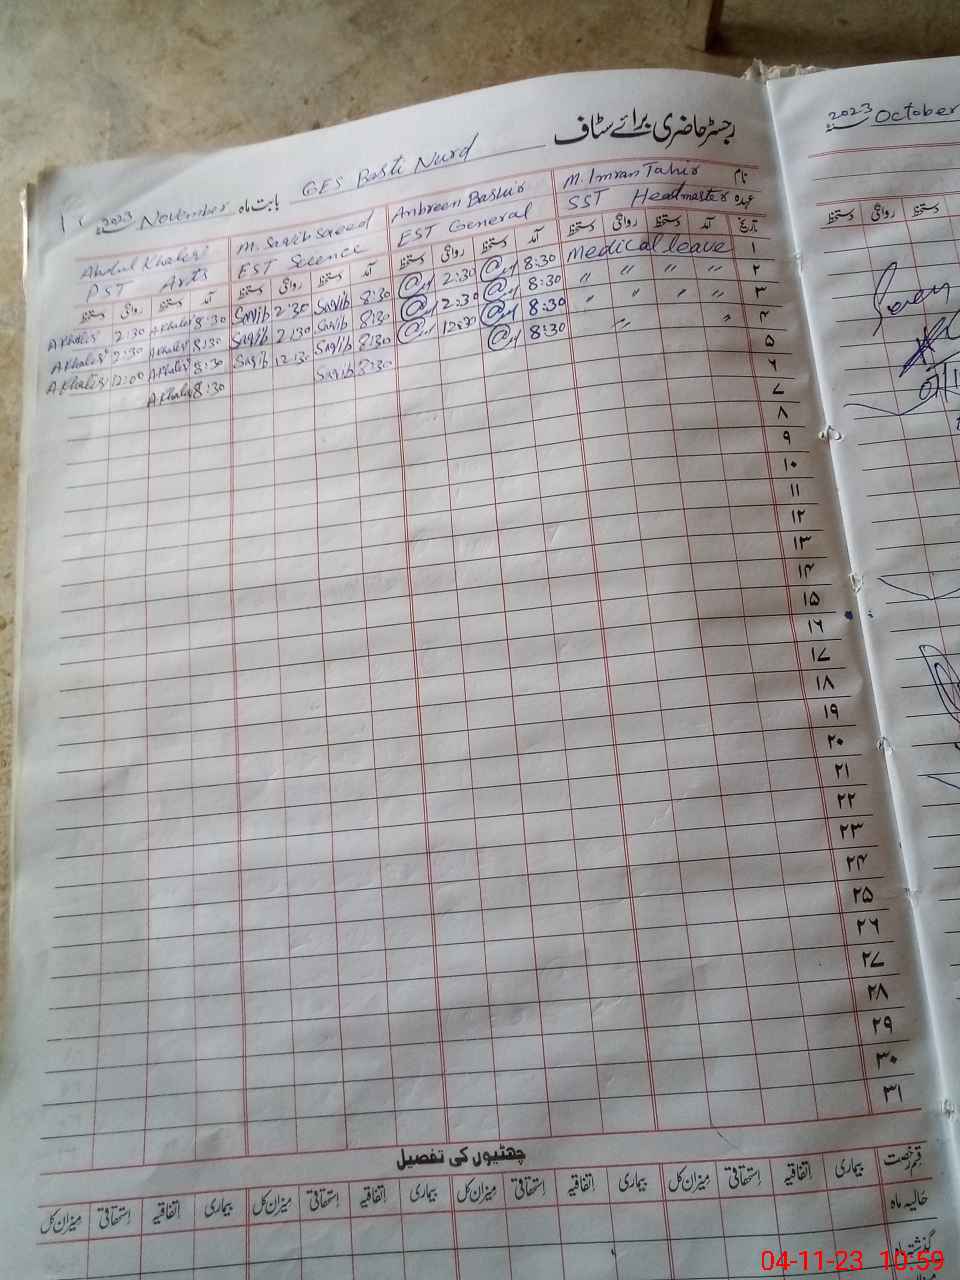 رجسٹر حاضری برائے سٹاف
GES Basti Nurd بابت ماہ November 2023
نام M. Imran Tahir Ambreen Bashir M. Saqib Saeed Abdul Khaliq
عہدہ SST Headmaster EST General EST Science PST Arts
تاریخ آمد دستخط روانگی دستخط آمد دستخط روانگی دستخط آمد دستخط روانگی دستخط آمد دستخط روانگی دستخط
۱ Medical leave 8:30 2:30 8:30 Saqib 2:30 Saqib 8:30 A Khaliq 2:30 A Khaliq
۲ " " " " 8:30 12:30 8:30 Saqib 2:30 Saqib 8:30 A Khaliq 2:30 A Khaliq
۳ " " " " 8:30 12:30 8:30 Saqib 12:30 Saqib 8:30 A Khaliq 12:00 A Khaliq
۴ " " 8:30 8:30 Saqib 8:30 A Khaliq
۵
۶
۷
۸
۹
۱۰
۱۱
۱۲
۱۳
۱۴
۱۵
۱۶
۱۷
۱۸
۱۹
۲۰
۲۱
۲۲
۲۳
۲۴
۲۵
۲۶
۲۷
۲۸
۲۹
۳۰
۳۱
چھٹیوں کی تفصیل
قسم رخصت بیماری اتفاقیہ استحقاقی میزان کل بیماری اتفاقیہ استحقاقی میزان کل بیماری اتفاقیہ استحقاقی میزان کل بیماری اتفاقیہ استحقاقی میزان کل
حالیہ ماہ
گذشتہ ماہ
2023 October
دستخط روانگی دستخط
04-11-23 10:59